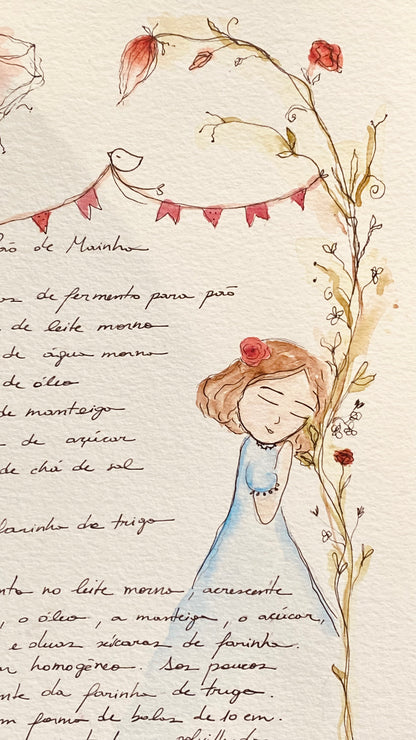 ão de Mainha
de fermento para pão
de leite morno
de água morna
de óleo
de manteiga
de açúcar
de chá de sal
farinha de trigo
no leite morno, acrescente
, o óleo, a manteiga, o açúcar,
e duas xícaras de farinha.
homogêneo. Aos poucos
da farinha de trigo.
forma de bolas de 10 cm.